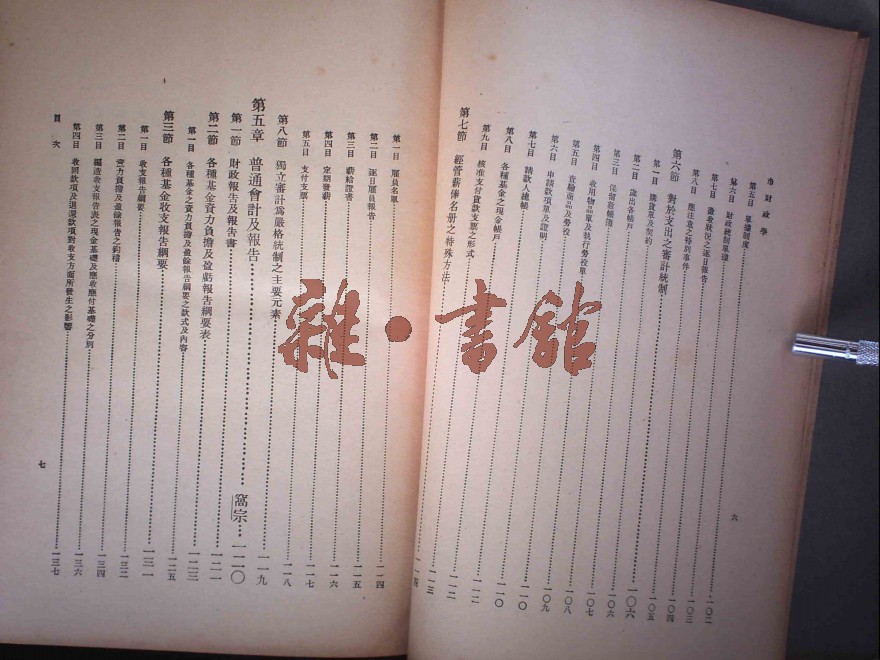 市財政學
六
第五目 單據制度 一〇二
第六目 財政總制單據
第七目 盡身狀況之逐日報告 一〇三
第八目 應注意之特別事件 一〇四
第六節 對於支出之審計統制
第一目 購貨單及契約 一〇五
第二目 歲出各帳戶 一〇六
第三目 保留款帳簿 一〇六
第四目 收用物品單及執行勞役單 一〇七
第五目 查驗商品及勞役 一〇八
第六目 申請款項單及證明 一〇九
第七目 請款人總帳 一一〇
第八目 各種基金之現金帳戶 一一〇
第九目 核准支付貨款支票之形式 一一二
第七節 經管薪俸名册之特殊方法 一一三
第一目 雇員名單 一一四
第二目 逐日雇員報告 一一五
第三目 薪給證書 一一五
第四目 定期發薪 一一六
第五目 支付支票 一一七
第八節 獨立審計爲嚴格統制之主要元素 一一八
第五章 普通會計及報告 一一九
第一節 財政報告及報告書 一二〇
第二節 各種基金資力負擔及盈虧報告綱要表 一二一
第一目 各種基金之資力負擔及盈餘報告綱要之款式及內容 一二三
第三節 各種基金收支報告綱要 一二五
第一目 收支報告綱要 一三一
第二目 資力負擔及盈餘報告之鈎稽 一三二
第三目 編造收支報告表之現金基礎及應收應付基礎之分別 一三四
第四目 收回款項及退還款項對收支方面所發生之影響 一三六
一三七
目次
七
雜·書館